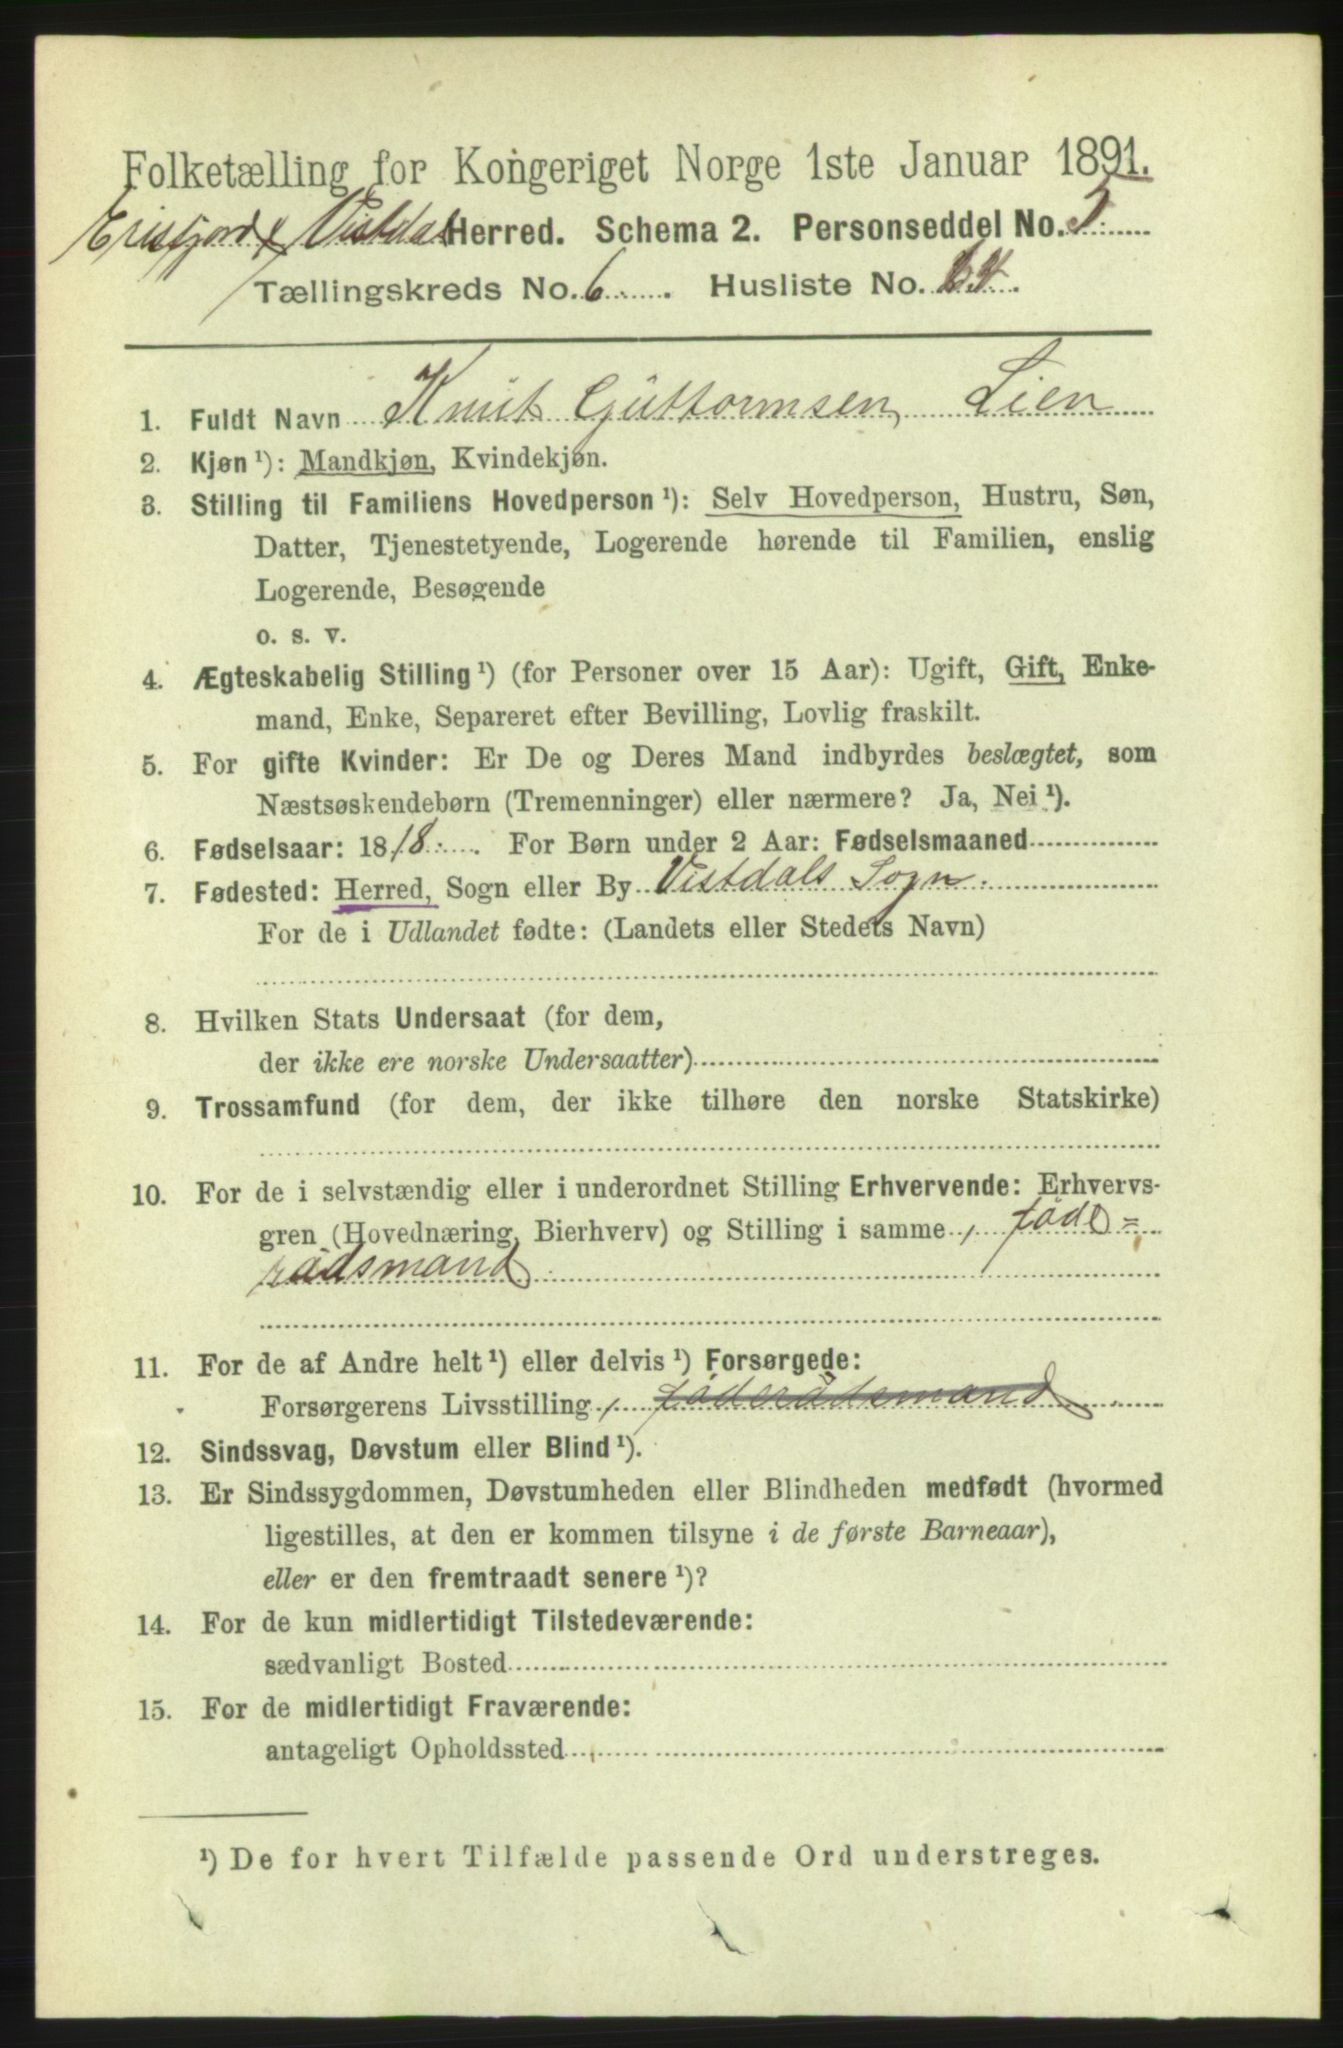 Folketælling for Kongeriget Norge 1ste Januar 1891.
Erisfjord & Vistdal Herred. Schema 2. Personseddel No. 5
Tællingskreds No. 6. Husliste No.
1. Fuldt Navn Knut Guttormsen Lien
2. Kjøn ¹): Mandkjøn, Kvindekjøn.
3. Stilling til Familiens Hovedperson ¹): Selv Hovedperson, Hustru, Søn,
Datter, Tjenestetyende, Logerende hørende til Familien, enslig
Logerende, Besøgende
o. s. v.
4. Ægteskabelig Stilling ¹) (for Personer over 15 Aar): Ugift, Gift, Enke-
mand, Enke, Separeret efter Bevilling, Lovlig fraskilt.
5. For gifte Kvinder: Er De og Deres Mand indbyrdes beslægtet, som
Næstsøskendebørn (Tremenninger) eller nærmere? Ja, Nei ¹).
6. Fødselsaar: 1818. For Børn under 2 Aar: Fødselsmaaned
7. Fødested: Herred, Sogn eller By Vistdals Sogn.
For de i Udlandet fødte: (Landets eller Stedets Navn)
8. Hvilken Stats Undersaat (for dem,
der ikke ere norske Undersaatter)
9. Trossamfund (for dem, der ikke tilhøre den norske Statskirke)
10. For de i selvstændig eller i underordnet Stilling Erhvervende: Erhvervs-
gren (Hovednæring, Bierhverv) og Stilling i samme , føde=
rådsmand
11. For de af Andre helt ¹) eller delvis ¹) Forsørgede:
Forsørgerens Livsstilling , føderådsmand
12. Sindssvag, Døvstum eller Blind ¹).
13. Er Sindssygdommen, Døvstumheden eller Blindheden medfødt (hvormed
ligestilles, at den er kommen tilsyne i de første Barneaar),
eller er den fremtraadt senere ¹)?
14. For de kun midlertidigt Tilstedeværende:
sædvanligt Bosted
15. For de midlertidigt Fraværende:
antageligt Opholdssted
¹) De for hvert Tilfælde passende Ord understreges.